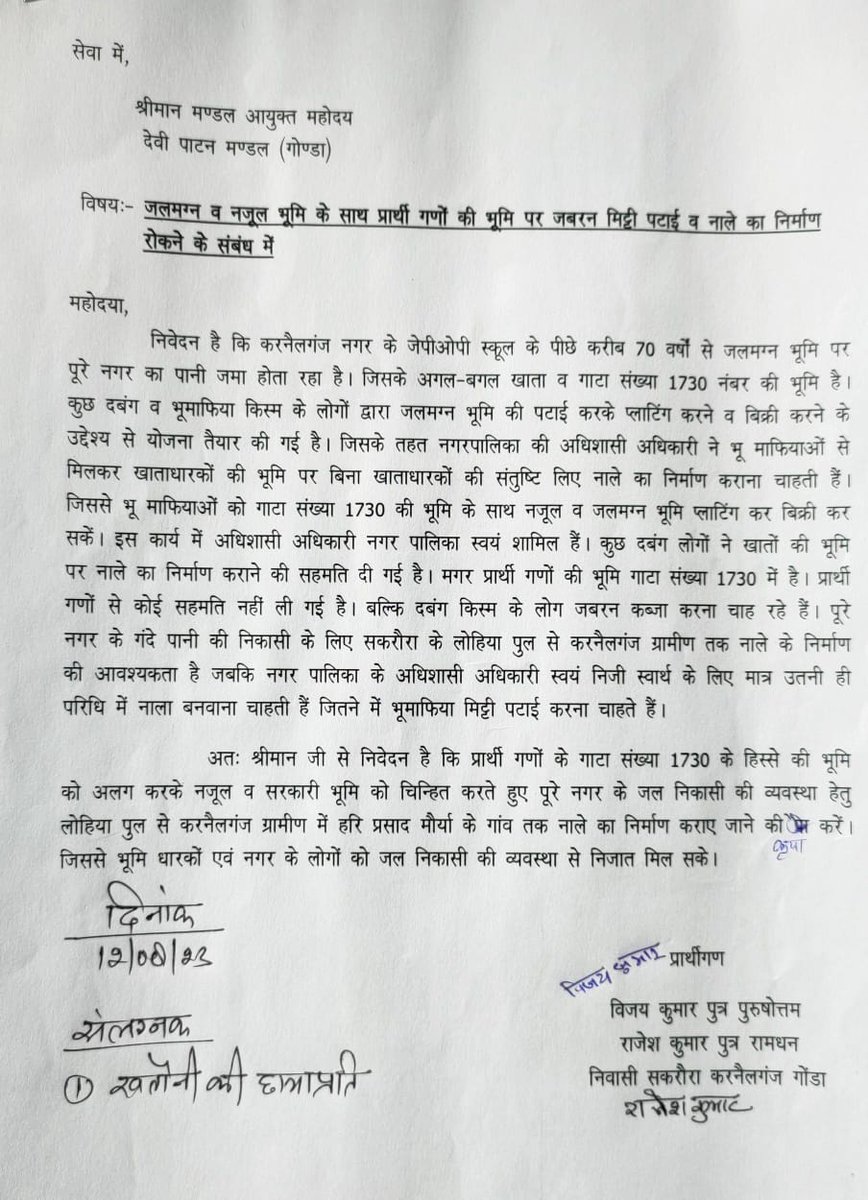 सेवा में,
श्रीमान मण्डल आयुक्त महोदय
देवी पाटन मण्डल (गोण्डा)
विषयः- जलमग्न व नजूल भूमि के साथ प्रार्थी गणों की भूमि पर जबरन मिट्टी पटाई व नाले का निर्माण
रोकने के संबंध में
महोदया,
निवेदन है कि करनैलगंज नगर के जेपीओपी स्कूल के पीछे करीब 70 वर्षों से जलमग्न भूमि पर
पूरे नगर का पानी जमा होता रहा है। जिसके अगल-बगल खाता व गाटा संख्या 1730 नंबर की भूमि है।
कुछ दबंग व भूमाफिया किस्म के लोगों द्वारा जलमग्न भूमि की पटाई करके प्लाटिंग करने व बिक्री करने के
उद्देश्य से योजना तैयार की गई है। जिसके तहत नगरपालिका की अधिशासी अधिकारी ने भू माफियाओं से
मिलकर खाताधारकों की भूमि पर बिना खाताधारकों की संतुष्टि लिए नाले का निर्माण कराना चाहती हैं।
जिससे भू माफियाओं को गाटा संख्या 1730 की भूमि के साथ नजूल व जलमग्न भूमि प्लाटिंग कर बिक्री कर
सकें। इस कार्य में अधिशासी अधिकारी नगर पालिका स्वयं शामिल हैं। कुछ दबंग लोगों ने खातों की भूमि
पर नाले का निर्माण कराने की सहमति दी गई है। मगर प्रार्थी गणों की भूमि गाटा संख्या 1730 में है। प्रार्थी
गणों से कोई सहमति नहीं ली गई है। बल्कि दबंग किस्म के लोग जबरन कब्जा करना चाह रहे हैं। पूरे
नगर के गंदे पानी की निकासी के लिए सकरौरा के लोहिया पुल से करनैलगंज ग्रामीण तक नाले के निर्माण
की आवश्यकता है जबकि नगर पालिका के अधिशासी अधिकारी स्वयं निजी स्वार्थ के लिए मात्र उतनी ही
परिधि में नाला बनवाना चाहती हैं जितने में भूमाफिया मिट्टी पटाई करना चाहते हैं।
अतः श्रीमान जी से निवेदन है कि प्रार्थी गणों के गाटा संख्या 1730 के हिस्से की भूमि
को अलग करके नजूल व सरकारी भूमि को चिन्हित करते हुए पूरे नगर के जल निकासी की व्यवस्था हेतु
लोहिया पुल से करनैलगंज ग्रामीण में हरि प्रसाद मौर्या के गांव तक नाले का निर्माण कराए जाने की करें।
कृपा
जिससे भूमि धारकों एवं नगर के लोगों को जल निकासी की व्यवस्था से निजात मिल सके।
दिनांक
12/08/23
विजय कुमार प्रार्थीगण
विजय कुमार पुत्र पुरुषोत्तम
संलग्नक
राजेश कुमार पुत्र रामधन
① खतौनी की छायाप्रति
निवासी सकरौरा करनैलगंज गोंडा
राजेश कुमार